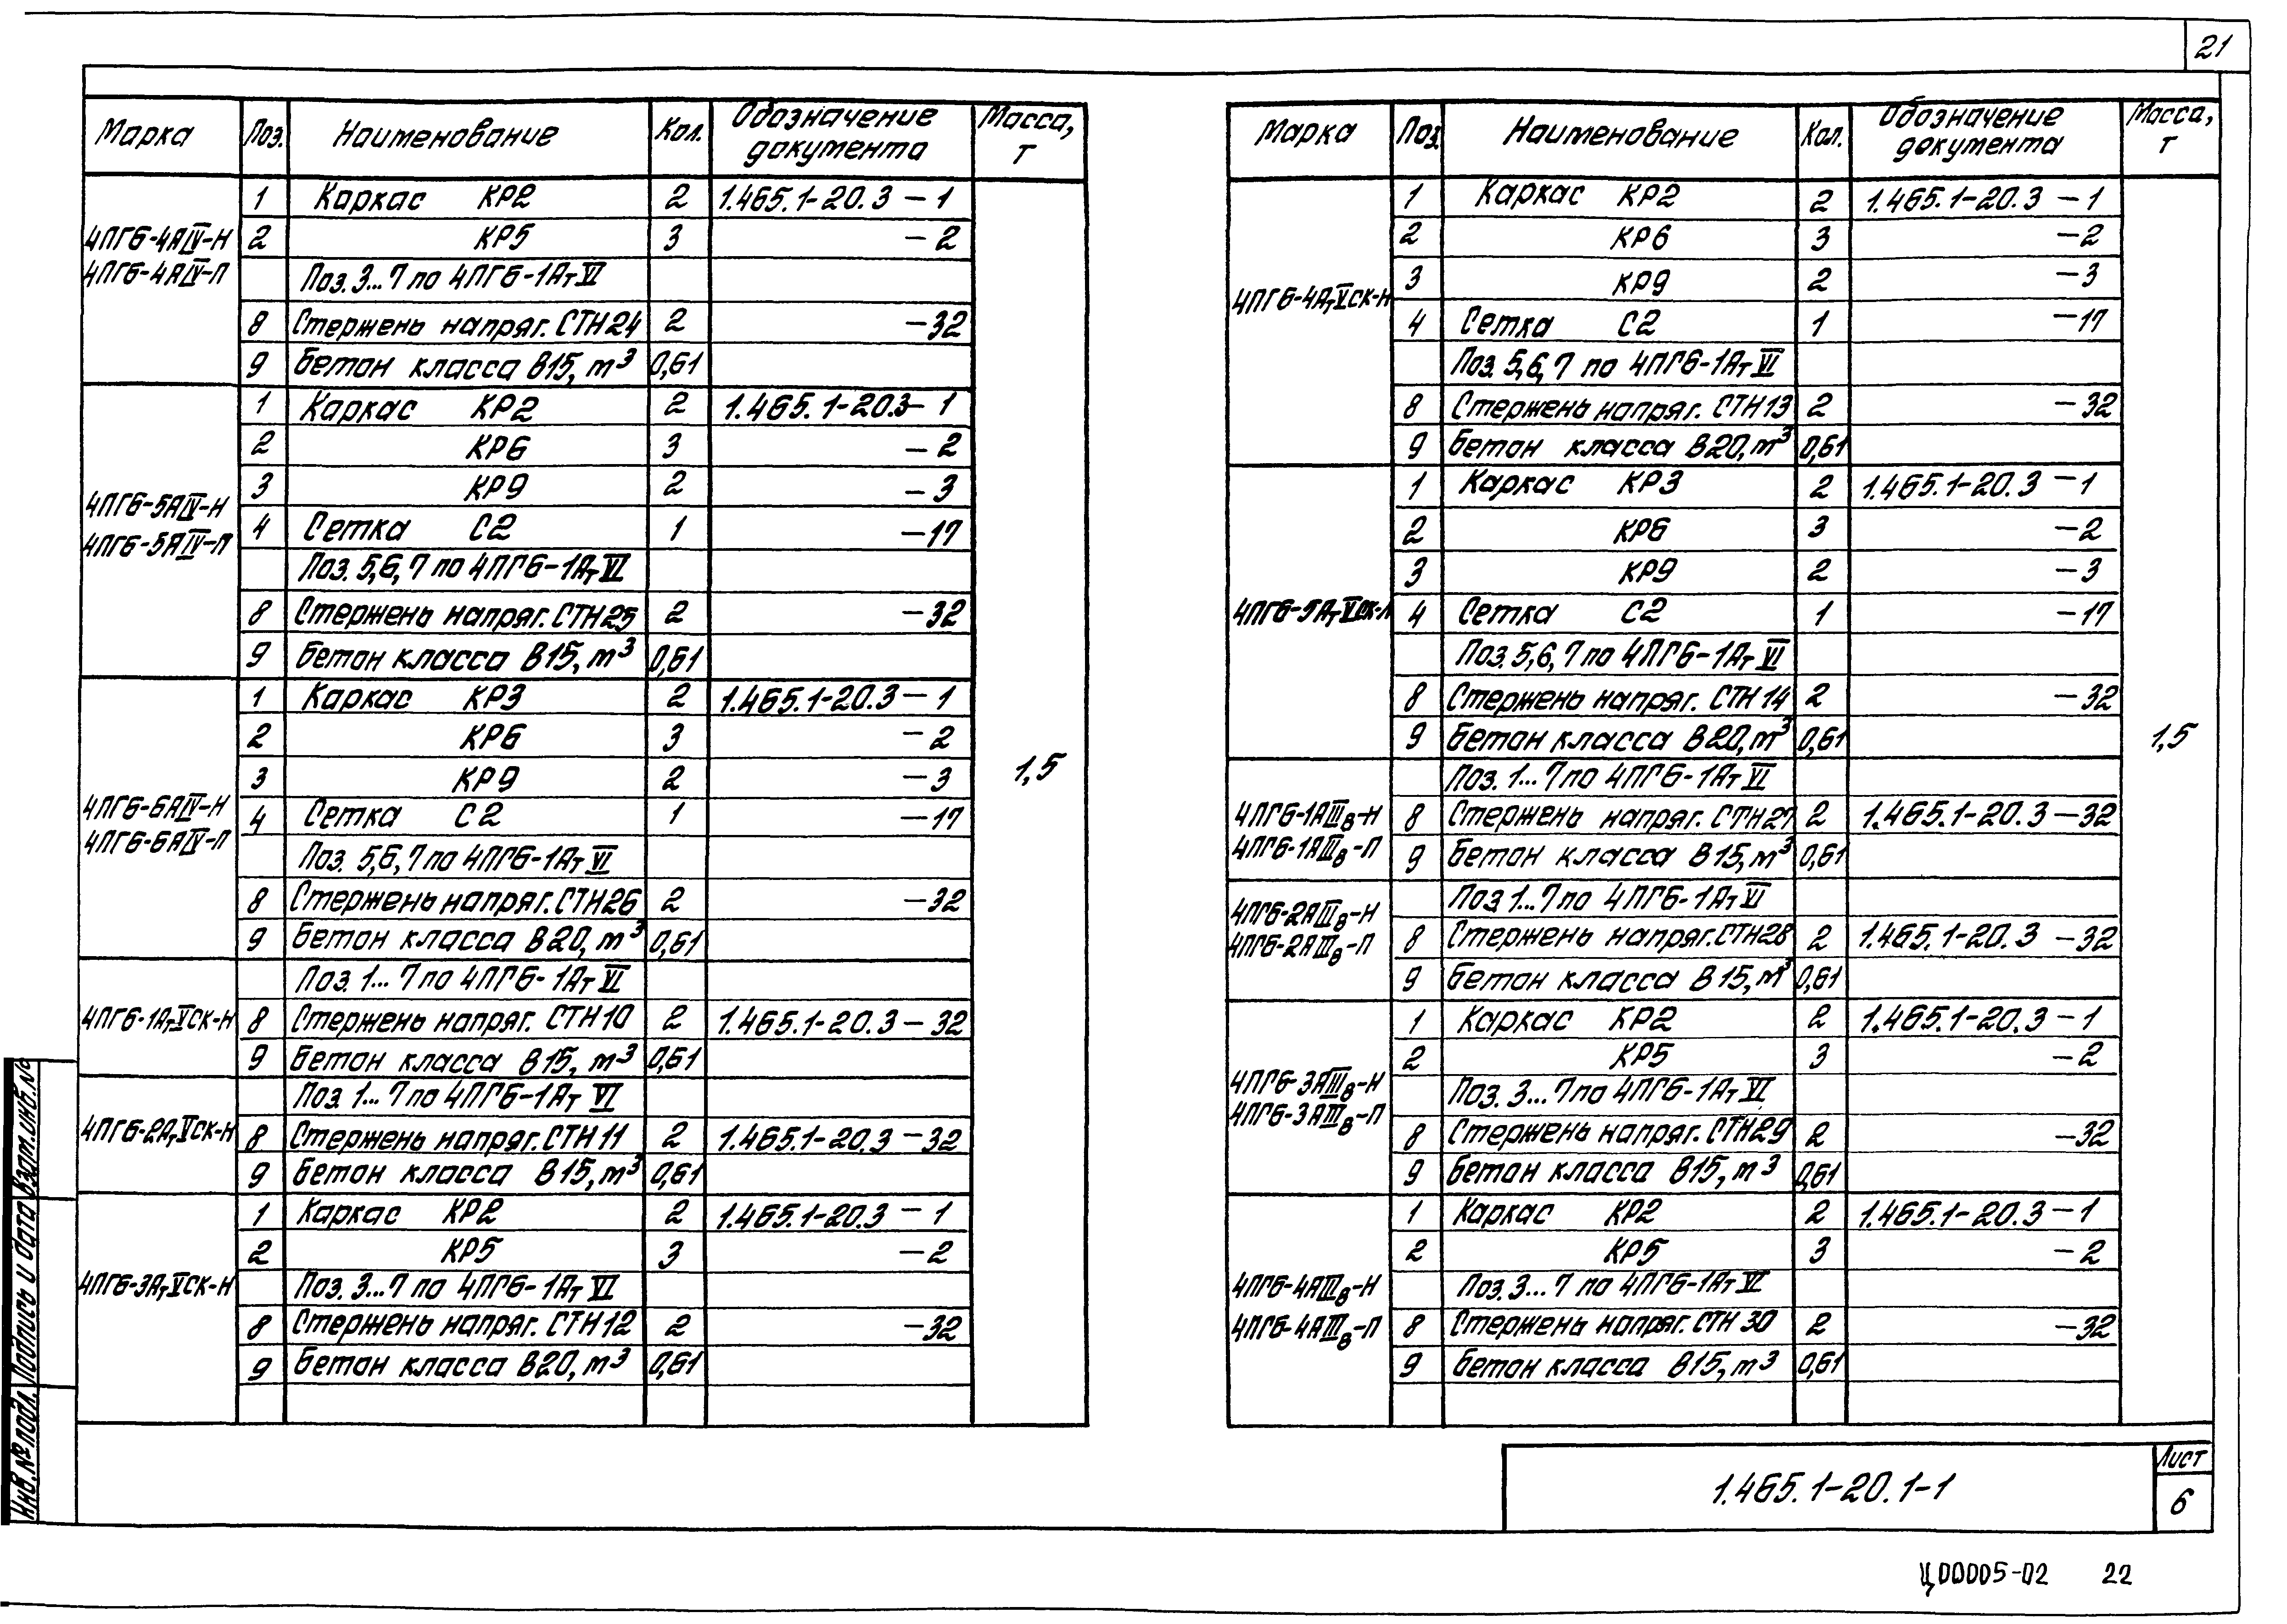 21
Марка Поз. Наименование Кол. Обозначение документа Масса, т
4ПГ6-4АIV-Н
4ПГ6-4АIV-П
1 Каркас КР2 2 1.465.1-20.3 – 1
2 КР5 3 – 2
Поз. 3...7 по 4ПГ6-1АтVI
8 Стержень напряг. СТН24 2 – 32
9 Бетон класса В15, м³ 0,61
4ПГ6-5АIV-Н
4ПГ6-5АIV-П
1 Каркас КР2 2 1.465.1-20.3 – 1
2 КР6 3 – 2
3 КР9 2 – 3
4 Сетка С2 1 – 17
Поз. 5,6,7 по 4ПГ6-1АтVI
8 Стержень напряг. СТН25 2 – 32
9 Бетон класса В15, м³ 0,61
4ПГ6-6АIV-Н
4ПГ6-6АIV-П
1 Каркас КР3 2 1.465.1-20.3 – 1
2 КР6 3 – 2
3 КР9 2 – 3
4 Сетка С2 1 – 17
Поз. 5,6,7 по 4ПГ6-1АтVI
8 Стержень напряг. СТН26 2 – 32
9 Бетон класса В20, м³ 0,61
1,5
4ПГ6-1АтVСК-Н
Поз. 1...7 по 4ПГ6-1АтVI
8 Стержень напряг. СТН10 2 1.465.1-20.3 – 32
9 Бетон класса В15, м³ 0,61
4ПГ6-2АтVСК-Н
Поз. 1...7 по 4ПГ6-1АтVI
8 Стержень напряг. СТН11 2 1.465.1-20.3 – 32
9 Бетон класса В15, м³ 0,61
4ПГ6-3АтVСК-Н
1 Каркас КР2 2 1.465.1-20.3 – 1
2 КР5 3 – 2
Поз. 3...7 по 4ПГ6-1АтVI
8 Стержень напряг. СТН12 2 – 32
9 Бетон класса В20, м³ 0,61
Марка Поз. Наименование Кол. Обозначение документа Масса, т
4ПГ6-4АтVСК-Н
1 Каркас КР2 2 1.465.1-20.3 – 1
2 КР6 3 – 2
3 КР9 2 – 3
4 Сетка С2 1 – 17
Поз. 5,6,7 по 4ПГ6-1АтVI
8 Стержень напряг. СТН13 2 – 32
9 Бетон класса В20, м³ 0,61
4ПГ6-5АтVСК-Н
1 Каркас КР3 2 1.465.1-20.3 – 1
2 КР6 3 – 2
3 КР9 2 – 3
4 Сетка С2 1 – 17
Поз. 5,6,7 по 4ПГ6-1АтVI
8 Стержень напряг. СТН14 2 – 32
9 Бетон класса В20, м³ 0,61
1,5
4ПГ6-1АIIIв-Н
4ПГ6-1АIIIв-П
Поз. 1...7 по 4ПГ6-1АтVI
8 Стержень напряг. СТН27 2 1.465.1-20.3 – 32
9 Бетон класса В15, м³ 0,61
4ПГ6-2АIIIв-Н
4ПГ6-2АIIIв-П
Поз. 1...7 по 4ПГ6-1АтVI
8 Стержень напряг. СТН28 2 1.465.1-20.3 – 32
9 Бетон класса В15, м³ 0,61
4ПГ6-3АIIIв-Н
4ПГ6-3АIIIв-П
1 Каркас КР2 2 1.465.1-20.3 – 1
2 КР5 3 – 2
Поз. 3...7 по 4ПГ6-1АтVI
8 Стержень напряг. СТН29 2 – 32
9 Бетон класса В15, м³ 0,61
4ПГ6-4АIIIв-Н
4ПГ6-4АIIIв-П
1 Каркас КР2 2 1.465.1-20.3 – 1
2 КР5 3 – 2
Поз. 3...7 по 4ПГ6-1АтVI
8 Стержень напряг. СТН30 2 – 32
9 Бетон класса В15, м³ 0,61
Инв. № подл. Подпись и дата Взам. инв. №
1.465.1-20.1-1
Лист
6
Ц00005-02 22